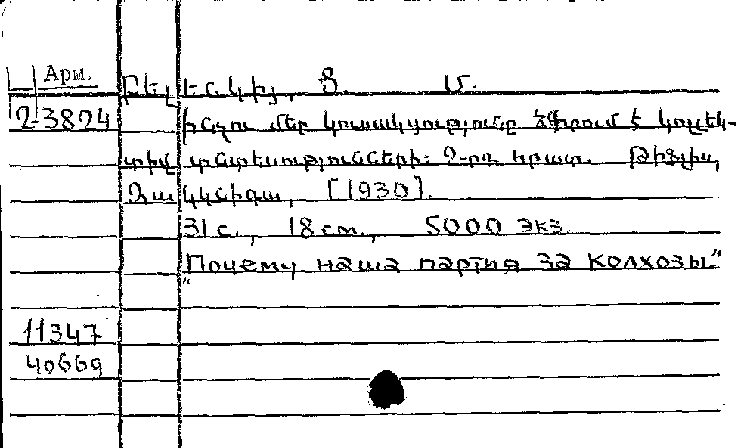 Арм.
2-3824
Բելենկիյ, Յ. Մ.
Ինչու մեր կուսակցությունը ձգտում է կոլեկ-
տիվ տնտեսությունների: 2-րդ հրատ. Թիֆլիս,
Զակկնիգա, [1930].
31 с., 18 см., 5000 экз
"Почему наша партия за колхозы"
11347
40669